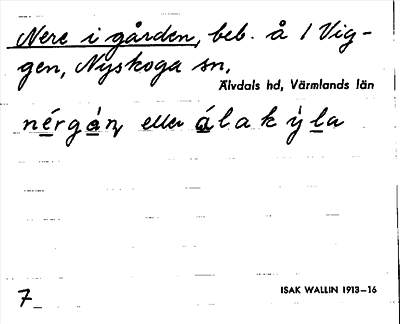 Nere i gården, beb. å 1 Vig-
gen, Nyskoga sn,
Älvdals hd, Värmlands län
nérgán, eller álakýla
7
ISAK WALLIN 1913–16